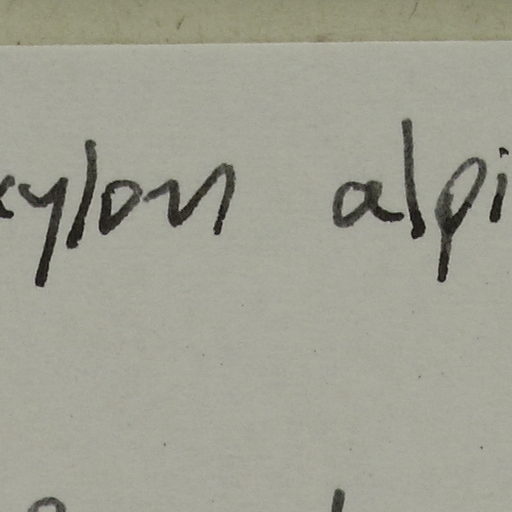 xylon alpi